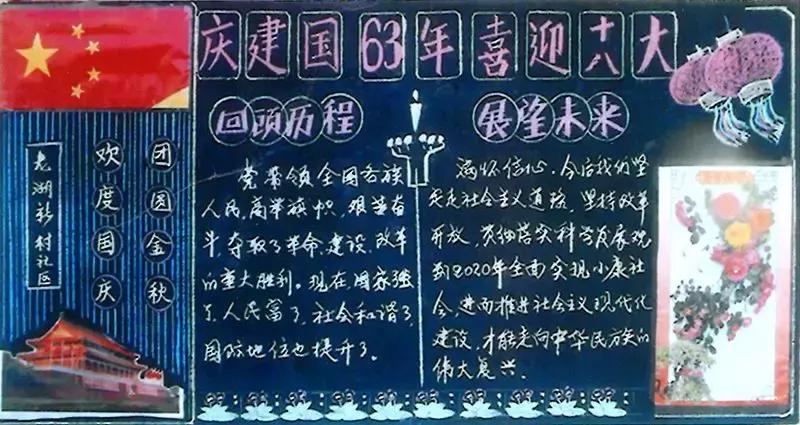 庆建国63年喜迎十八大
老湖新村社区
欢度国庆
团圆金秋
回顾历程
党带领全国各族
人民,高举旗帜,艰苦奋
斗,夺取了革命、建设、改革
的重大胜利。现在国家强
了,人民富了,社会和谐了,
国际地位也提升了。
展望未来
满怀信心,今后我们坚
定走社会主义道路,坚持改革
开放,贯彻落实科学发展观
到2020年全面实现小康社
会,进而推进社会主义现代化
建设,才能走向中华民族的
伟大复兴.